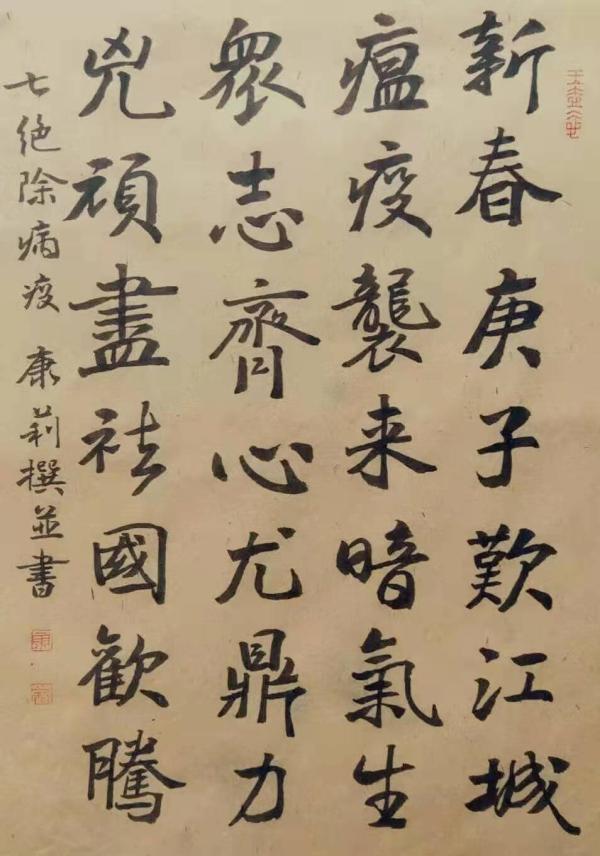 新春庚子歎江城
瘟疫襲来暗氣生
衆志齊心尤鼎力
兇頑盡祛國歡騰
七絕除病疫 康莉撰並書